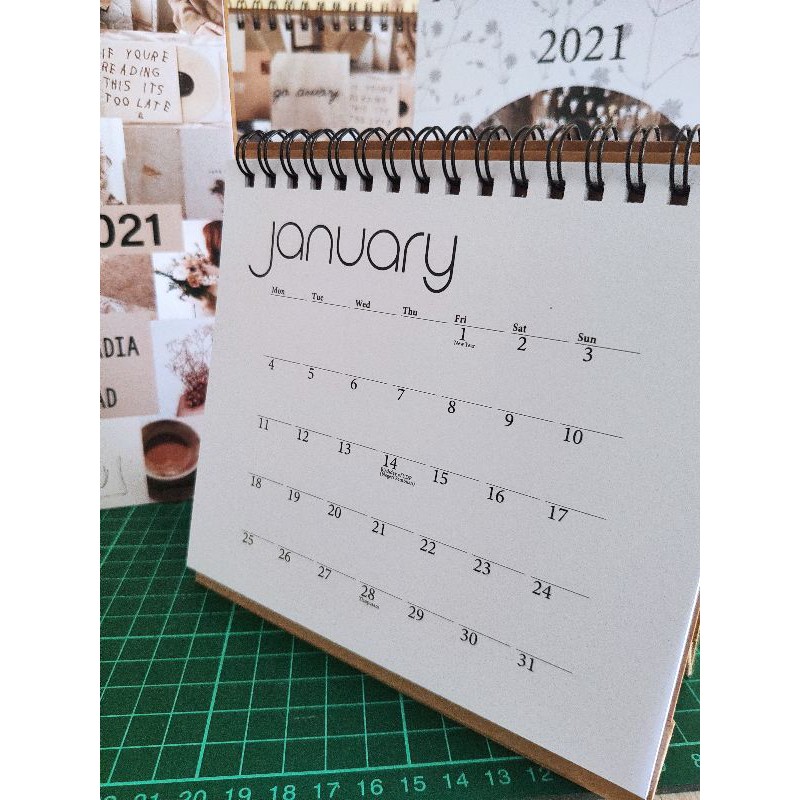 IF YOURE
READING
THIS ITS
TOO LATE
go away
2021
2021
january
Mon Tue Wed Thu Fri Sat Sun
1 2 3
New Year
4 5 6 7 8 9 10
11 12 13 14 15 16 17
18 19 20 21 22 23 24
25 26 27 28 29 30 31
Thaipusam
21 20 19 18 17 16 15 14 13 12 8